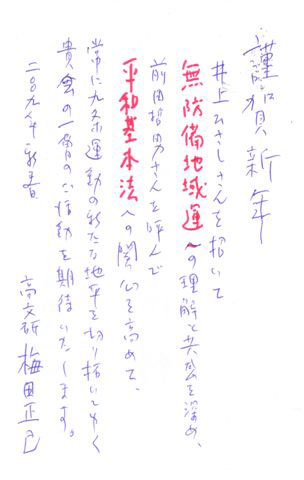 謹賀新年
井上ひさしさんを招いて
無防備地域運への理解と共感を深め、
前田哲男さんを呼んで
平和基本法への関心を高めて、
常に九条運動の新たな地平を切り拓いてゆく
貴会の一層のご活動を期待いたします。
二〇〇九年新春
高文研 梅田正己